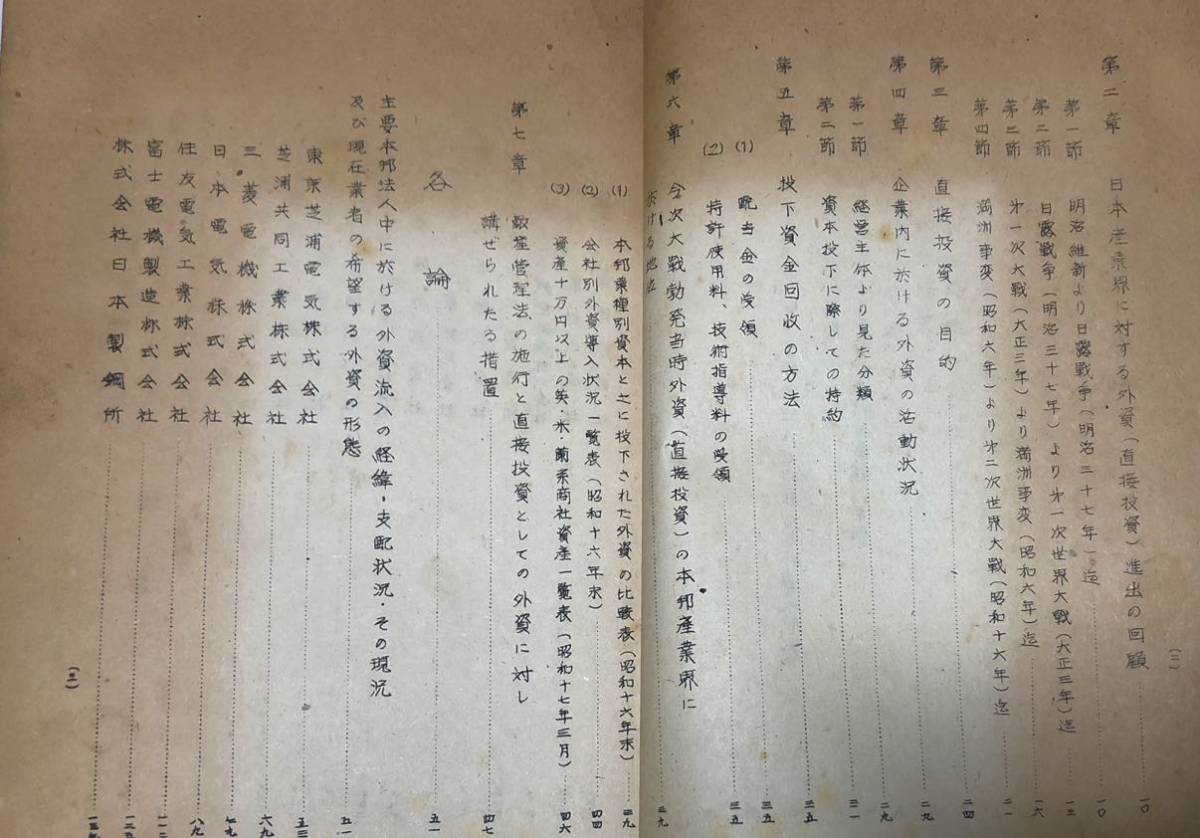 (二)
第二章 日本産業界に対する外資(直接投資)進出の回顧 一〇
第一節 明治維新より日露戦争(明治三十七年)迄 一〇
第二節 日露戦争(明治三十七年)より第一次世界大戦(大正三年)迄 一三
第三節 第一次大戦(大正三年)より満洲事変(昭和六年)迄 一六
第四節 満洲事変(昭和六年)より第二次世界大戦(昭和十六年)迄 二一
第三章 直接投資の目的 二四
第四章 企業内に於ける外資の活動状況 二九
第一節 経営主体より見た分類 二九
第二節 資本投下に際しての特約 三一
第五章 投下資金回收の方法 三五
(1) 配当金の受領 三五
(2) 特許使用料、技術指導料の受領 三五
第六章 今次大戦勃発当時外資(直接投資)の本邦産業界に
於ける地位 三九
(1) 本邦業種別資本と之に投下された外資の比較表(昭和十六年末) 三九
(2) 会社別外資導入状況一覧表(昭和十六年末) 四四
(3) 資産十万円以上の英・米・蘭系商社資産一覧表(昭和十七年三月) 四六
第七章 敵産管理法の施行と直接投資としての外資に対し
講ぜられたる措置 四七
各論 五一
主要本邦法人中に於ける外資流入の経緯・支配状況・その現況
及び現在業者の希望する外資の形態 五一
東京芝浦電気株式会社 五三
芝浦共同工業株式会社 六九
三菱電機株式会社 七九
日本電気株式会社 八九
住友電気工業株式会社
富士電機製造株式会社
株式会社日本製鋼所
(三)